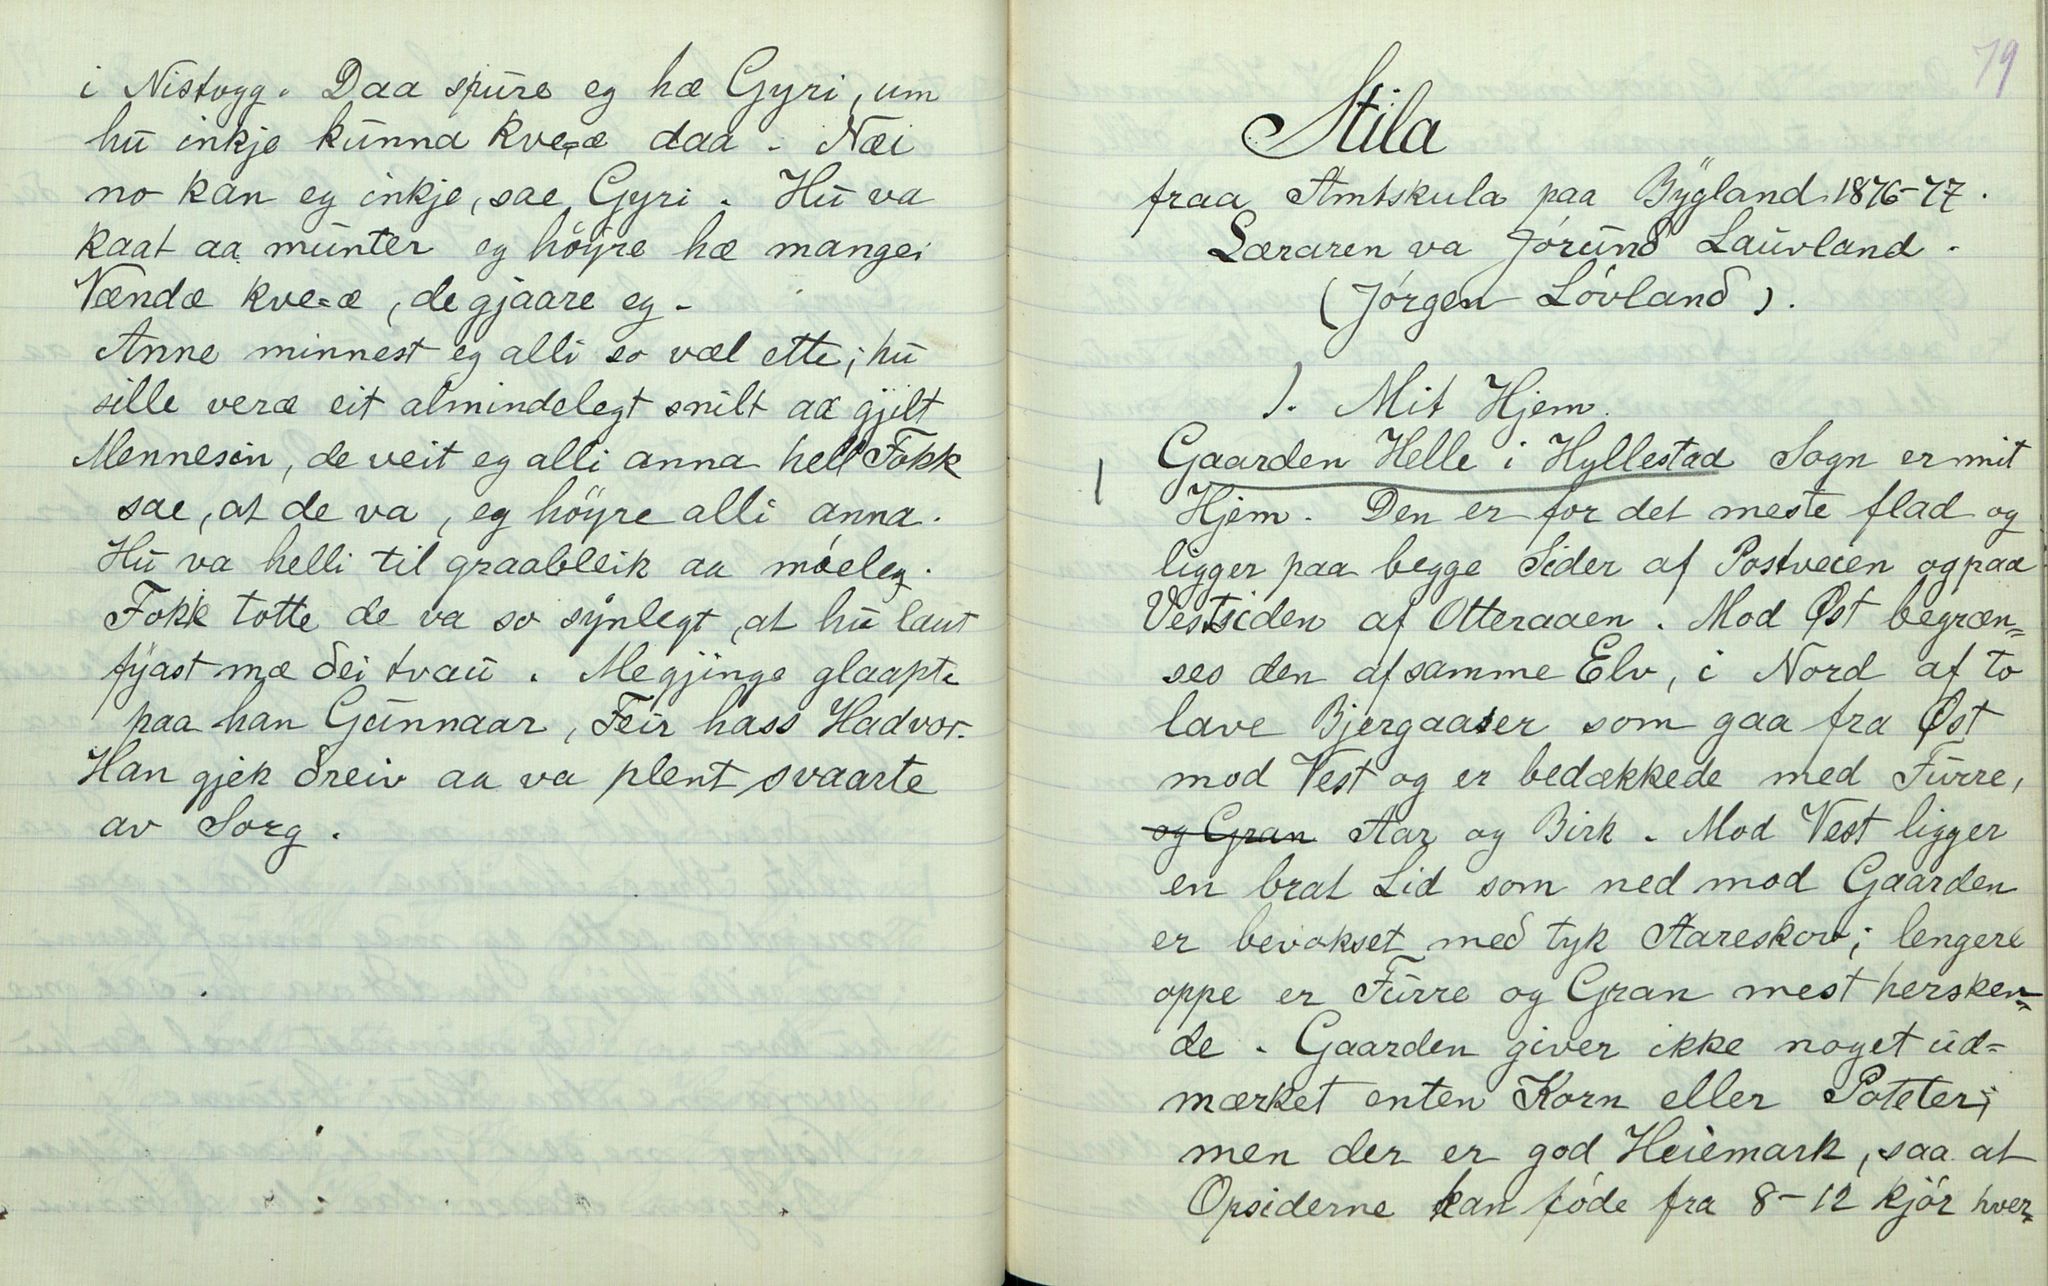 i Nistogg. Daa spure eg hæ Gyri, um
hu inkje kunna kve=æ daa. Næi
no kan eg inkje, sae Gyri. Hu va
kaat aa munter eg höyre hæ mangei
Vændæ kve=æ, de gjaare eg.
Anne minnest eg alli so væl ette; hu
sille veræ eit almindelegt snilt aa gjilt
Mennesin, de veit eg alli anna hell Fokk
sae, at de va, eg höyre alli anna.
Hu va helli til graableik aa móeleg.
Fokk totte de va so synlegt, at hu laut
fyast mæ dei tvau. Me gjinge glaapte
paa han Gunnaar, Feir hass Hadvor.
Han gjek dreiv aa va plent svaarte
av Sorg.
79
Stila
fraa Amtskula paa Bygland 1876-77.
Læraren va Jórund Lauvland.
(Jórgen Lóvland).
1. Mit Hjem.
Gaarden Helle i Hyllestad Sogn er mit
Hjem. Den er for det meste flad og
ligger paa begge Sider af Postveien og paa
Vestsiden af Otteraaen. Mod Øst begræn=
ses den af samme Elv, i Nord af to
lave Bjergaaser som gaa fra Øst
mod Vest og er bedækkede med Furre,
og Gran Aar og Birk. Mod Vest ligger
en brat Lid som ned mod Gaarden
er bevokset med tyk Aareskov; lengere
oppe er Furre og Gran mest hersken=
de. Gaarden giver ikke noget ud=
mærket enten Korn eller Poteter;
men der er god Heiemark, saa at
Opsiderne kan fóde fra 8-12 kjór hver=